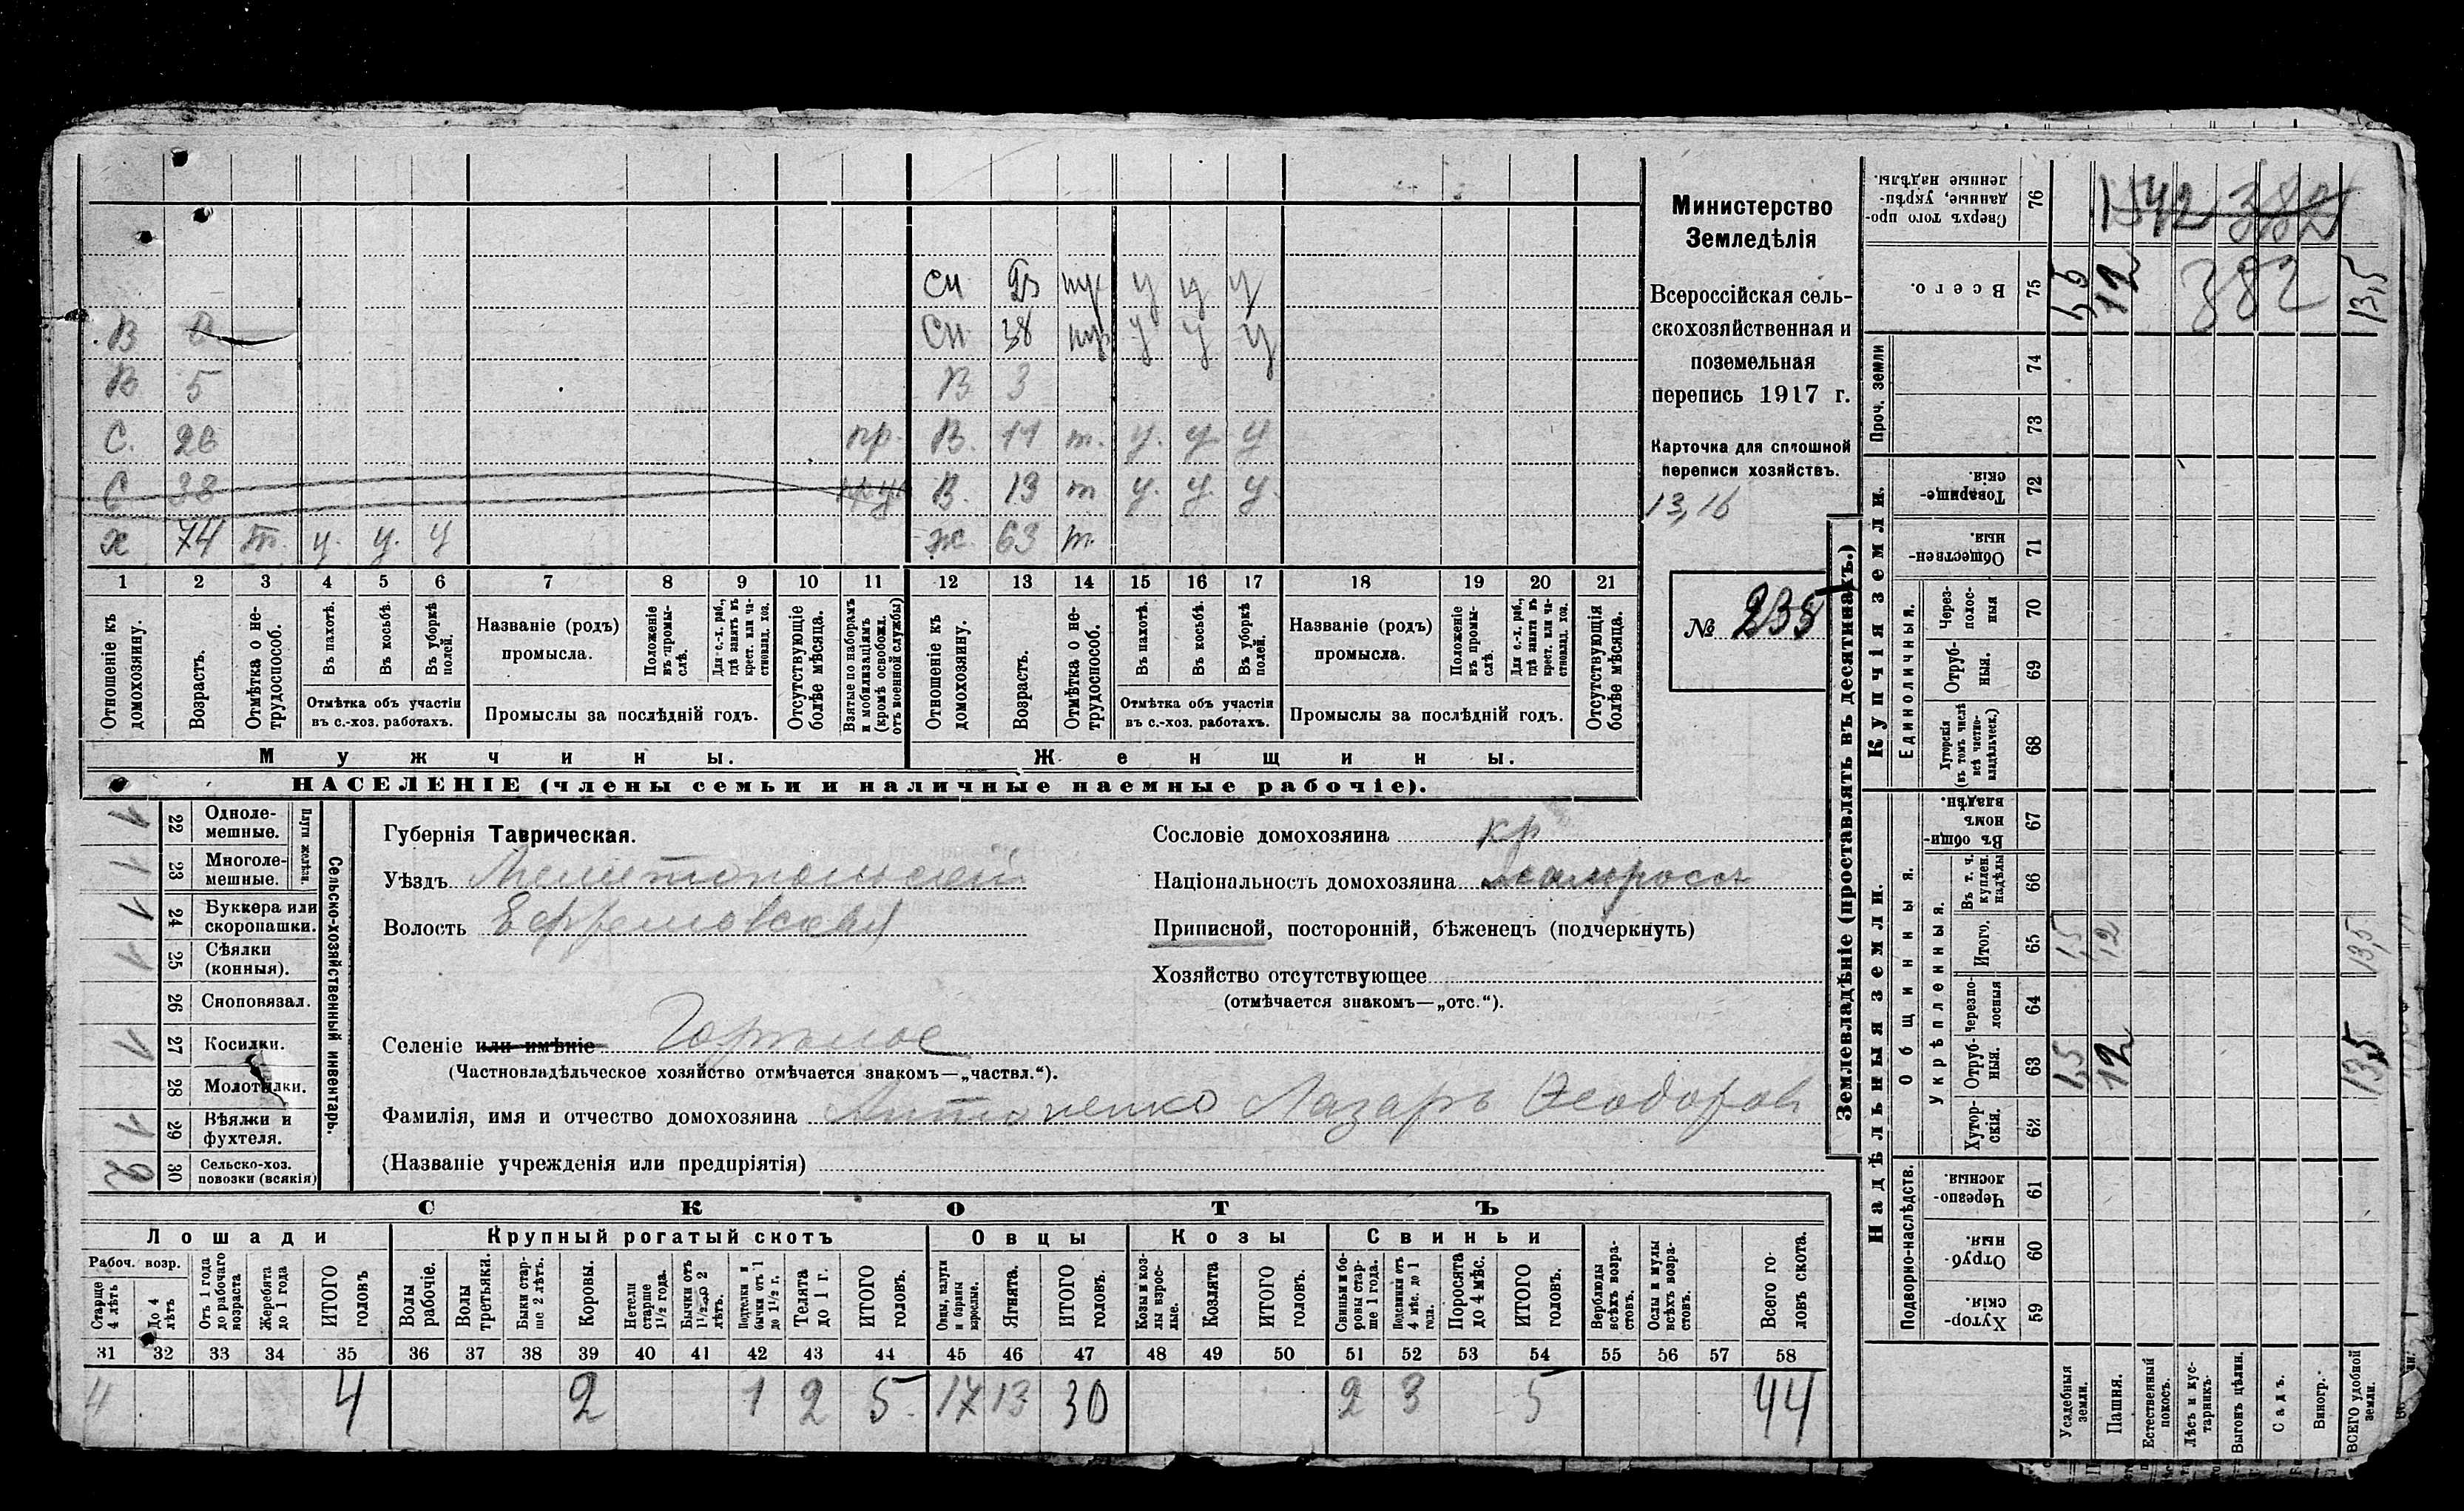 Сн 23 у у у
Сн 38 у у у
В
В 5 В 3
С. 26 пр. В. 11 т. у. у у
С 38 В. 13 т у. у. у.
х 74 т. у. у. у ж. 63 т.
1 2 3 4 5 6 7 8 9 10 11 12 13 14 15 16 17 18 19 20 21
Отношеніе къ домохозяину.
Возрастъ.
Отмѣтка о не-трудоспособ.
Въ пахотѣ.
Въ косьбѣ.
Въ уборкѣ полей.
Отмѣтка объ участіи
въ с.-хоз. работахъ.
Названіе (родъ)
промысла.
Положеніе въ промы-слѣ.
Для с.-х. раб., гдѣ занятъ въ крест. или ча-стновлад. хоз.
Промыслы за послѣдній годъ.
Отсутствующіе болѣе мѣсяца.
Взятые по наборамъ и мобилизаціямъ (кромѣ освобожд. отъ военной службы)
Отношеніе къ домохозяину.
Возрастъ.
Отмѣтка о не-трудоспособ.
Въ пахотѣ.
Въ косьбѣ.
Въ уборкѣ полей.
Отмѣтка объ участіи
въ с.-хоз. работахъ.
Названіе (родъ)
промысла.
Положеніе въ промы-слѣ.
Для с.-х. раб., гдѣ занята въ крест. или ча-стновлад. хоз.
Промыслы за послѣдній годъ.
Отсутствующія болѣе мѣсяца.
Мужчины. Женщины.
НАСЕЛЕНІЕ (члены семьи и наличные наемные рабочіе).
Министерство
Земледѣлія
Всероссійская сель-
скохозяйственная и
поземельная
перепись 1917 г.
Карточка для сплошной
переписи хозяйствъ.
13,16
№ 235
22 Одноле-мешные. 1
23 Многоле-мешные. 1
Плуги желѣзн.
24 Буккера или скоропашки. 1
25 Сѣялки (конныя). 1
26 Сноповязал.
27 Косилки. 1
28 Молотилки.
29 Вѣялки и фухтеля. 1
30 Сельско-хоз. повозки (всякія) 2
Сельско-хозяйственный инвентарь.
Губернія Таврическая.
Уѣздъ Мелитопольскій
Волость Ефремовская
Селеніе или имѣніе Горѣлое
(Частновладѣльческое хозяйство отмѣчается знакомъ—„частвл.“).
Фамилія, имя и отчество домохозяина Антоненко Лазарь Ѳеодоров
(Названіе учрежденія или предпріятія)
Сословіе домохозяина кр
Національность домохозяина малоросъ
Приписной, посторонній, бѣженецъ (подчеркнуть)
Хозяйство отсутствующее
(отмѣчается знакомъ—„отс.“).
СКОТЪ
Лошади Крупный рогатый скотъ Овцы Козы Свиньи
Рабоч. возр.
Старше 4 лѣтъ
До 4 лѣтъ
Отъ 1 года до рабочаго возраста
Жеребята до 1 года
ИТОГО головъ
Волы рабочіе.
Волы третьяки.
Быки стар-ше 2 лѣтъ.
Коровы.
Нетели старше 1½ года.
Бычки отъ 1½ до 2 лѣтъ.
Подтелки и бычки отъ 1 до 1½ г.
Телята до 1 г.
ИТОГО головъ.
Овцы, валухи и бараны взрослые.
Ягнята.
ИТОГО головъ.
Козы и коз-лы взрос-лые.
Козлята
ИТОГО головъ.
Свиньи и бо-ровы стар-ше 1 года.
Подсвинки отъ 4 мѣс. до 1 года.
Поросята до 4 мѣс.
ИТОГО головъ.
Верблюды всѣхъ возра-стовъ.
Ослы и мулы всѣхъ возра-стовъ.
Всего го-ловъ скота.
31 32 33 34 35 36 37 38 39 40 41 42 43 44 45 46 47 48 49 50 51 52 53 54 55 56 57 58
4 4 2 1 2 5 17 13 30 2 3 5 44
Землевладѣніе (проставлять въ десятинахъ.)
Надѣльныя земли. Купчія земли.
Подворно-наслѣдств. Общинныя. Укрѣпленныя. Единоличныя. Проч. земли
Сверхъ того про-данные, укрѣп-ленные надѣлы. 76 1542 382
Всего. 75 1,5 12 382 13,5
74
73
Товарище-скія. 72
Обществен-ныя. 71
Через-полос-ныя 70
Отруб-ныя. 69
Хуторскія (въ томъ числѣ всѣ частно-владѣльческ.) 68
Въ общи-номъ владѣн. 67
Въ т. ч. куплен. надѣлы 66
Итого. 65 1,5 12 13,5
Черезпо-лосныя 64
Отруб-ныя. 63 1,5 12 13,5
Хутор-скія. 62
Черезпо-лосныя. 61
Отруб-ныя. 60
Хутор-скія. 59
Усадебныя земли.
Пашня.
Естественный покосъ.
Лѣсъ и кус-тарникъ.
Выгонъ цѣлин.
Садъ.
Виногр.
ВСЕГО удобной земли.